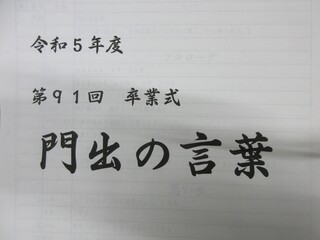 令和５年度
第９１回　卒業式
門出の言葉